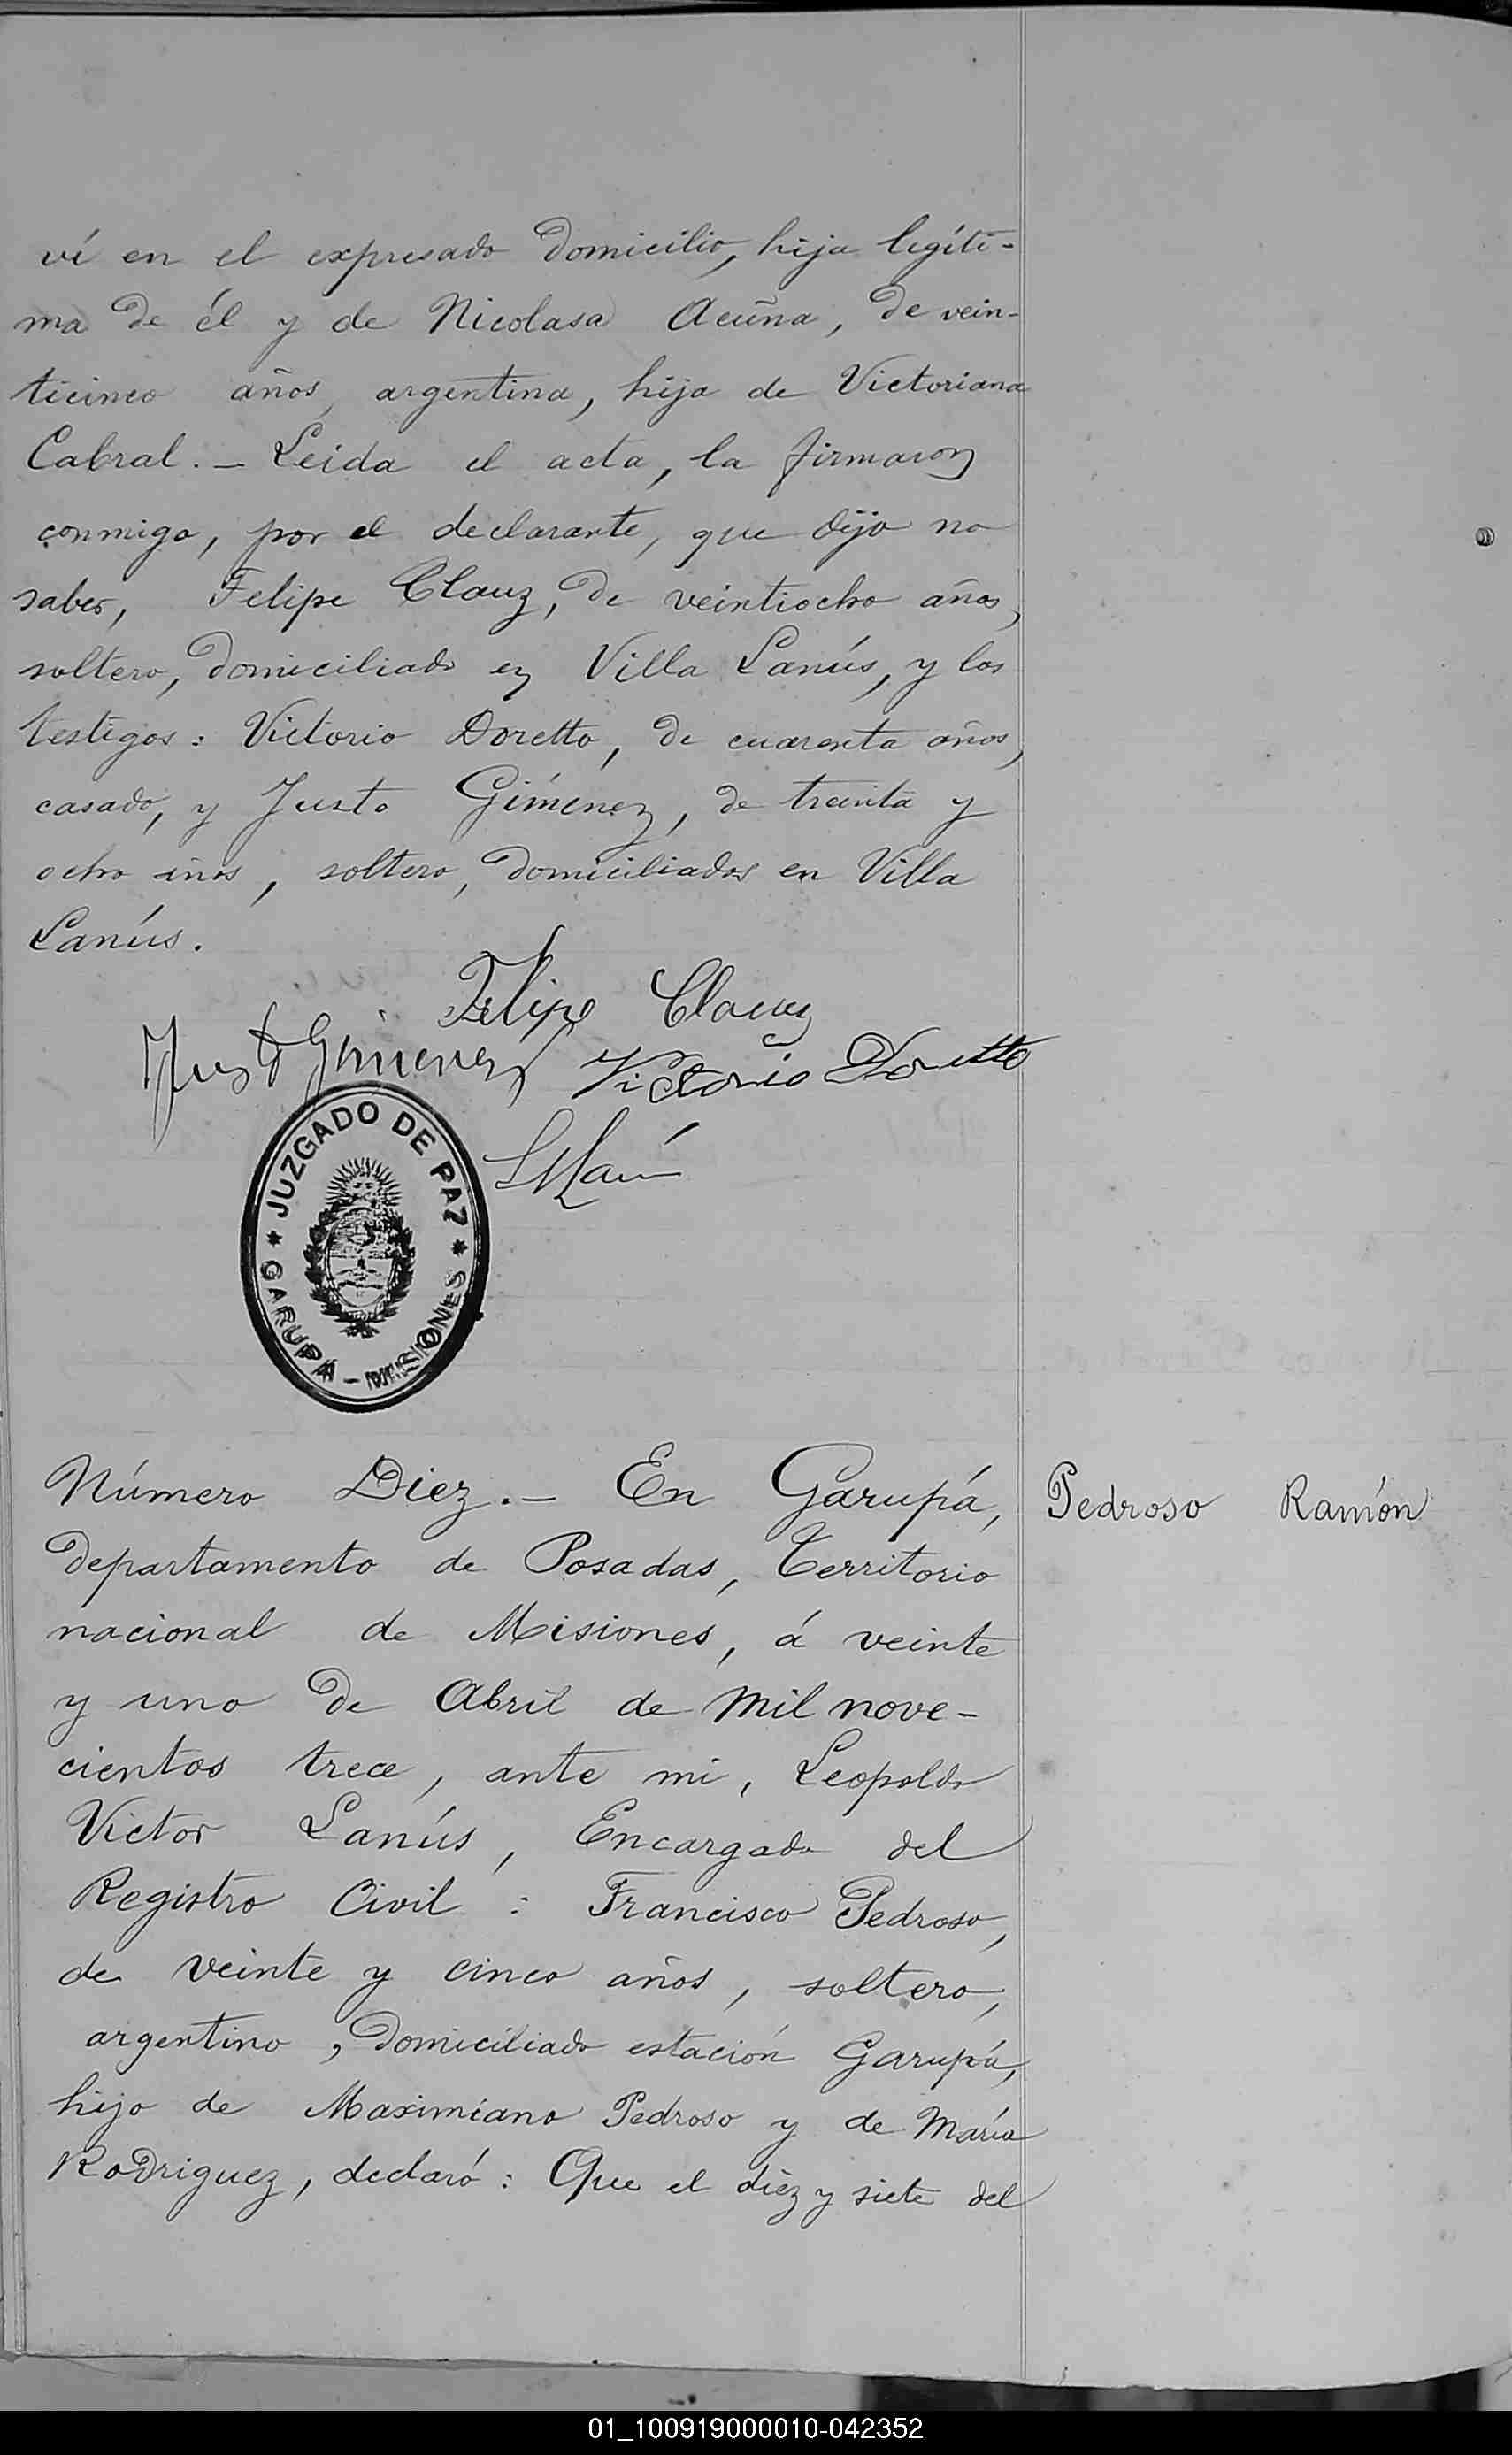 ví en el expresado domicilio, hija legíti-
ma de él y de Nicolasa Acuña, de vein-
ticinco años, argentina, hija de Victoriana
Cabral. — Leida el acta, la firmaron
conmigo, por el declarante, que dijo no
saber, Felipe Clauz, de veintiocho años,
soltero, domiciliado en Villa Lanús, y los
testigos: Victorio Doretto, de cuarenta años,
casado, y Justo Giménez, de treinta y
ocho años, soltero, domiciliados en Villa
Lanús.
Felipe Clauz
Justo Gimenez Victorio Doretto
JUZGADO DE PAZ
GARUPÁ - MISIONES
Número Diez. — En Garupá,
Pedroso Ramón
departamento de Posadas, Territorio
nacional de Misiones, á veinte
y uno de Abril de mil nove-
cientos trece, ante mi, Leopoldo
Victor Lanús, Encargado del
Registro Civil : Francisco Pedroso,
de veinte y cinco años, soltero,
argentino, domiciliado estación Garupá,
hijo de Maximiano Pedroso y de María
Rodriguez, declaró: Que el diez y siete del
01_100919000010-042352